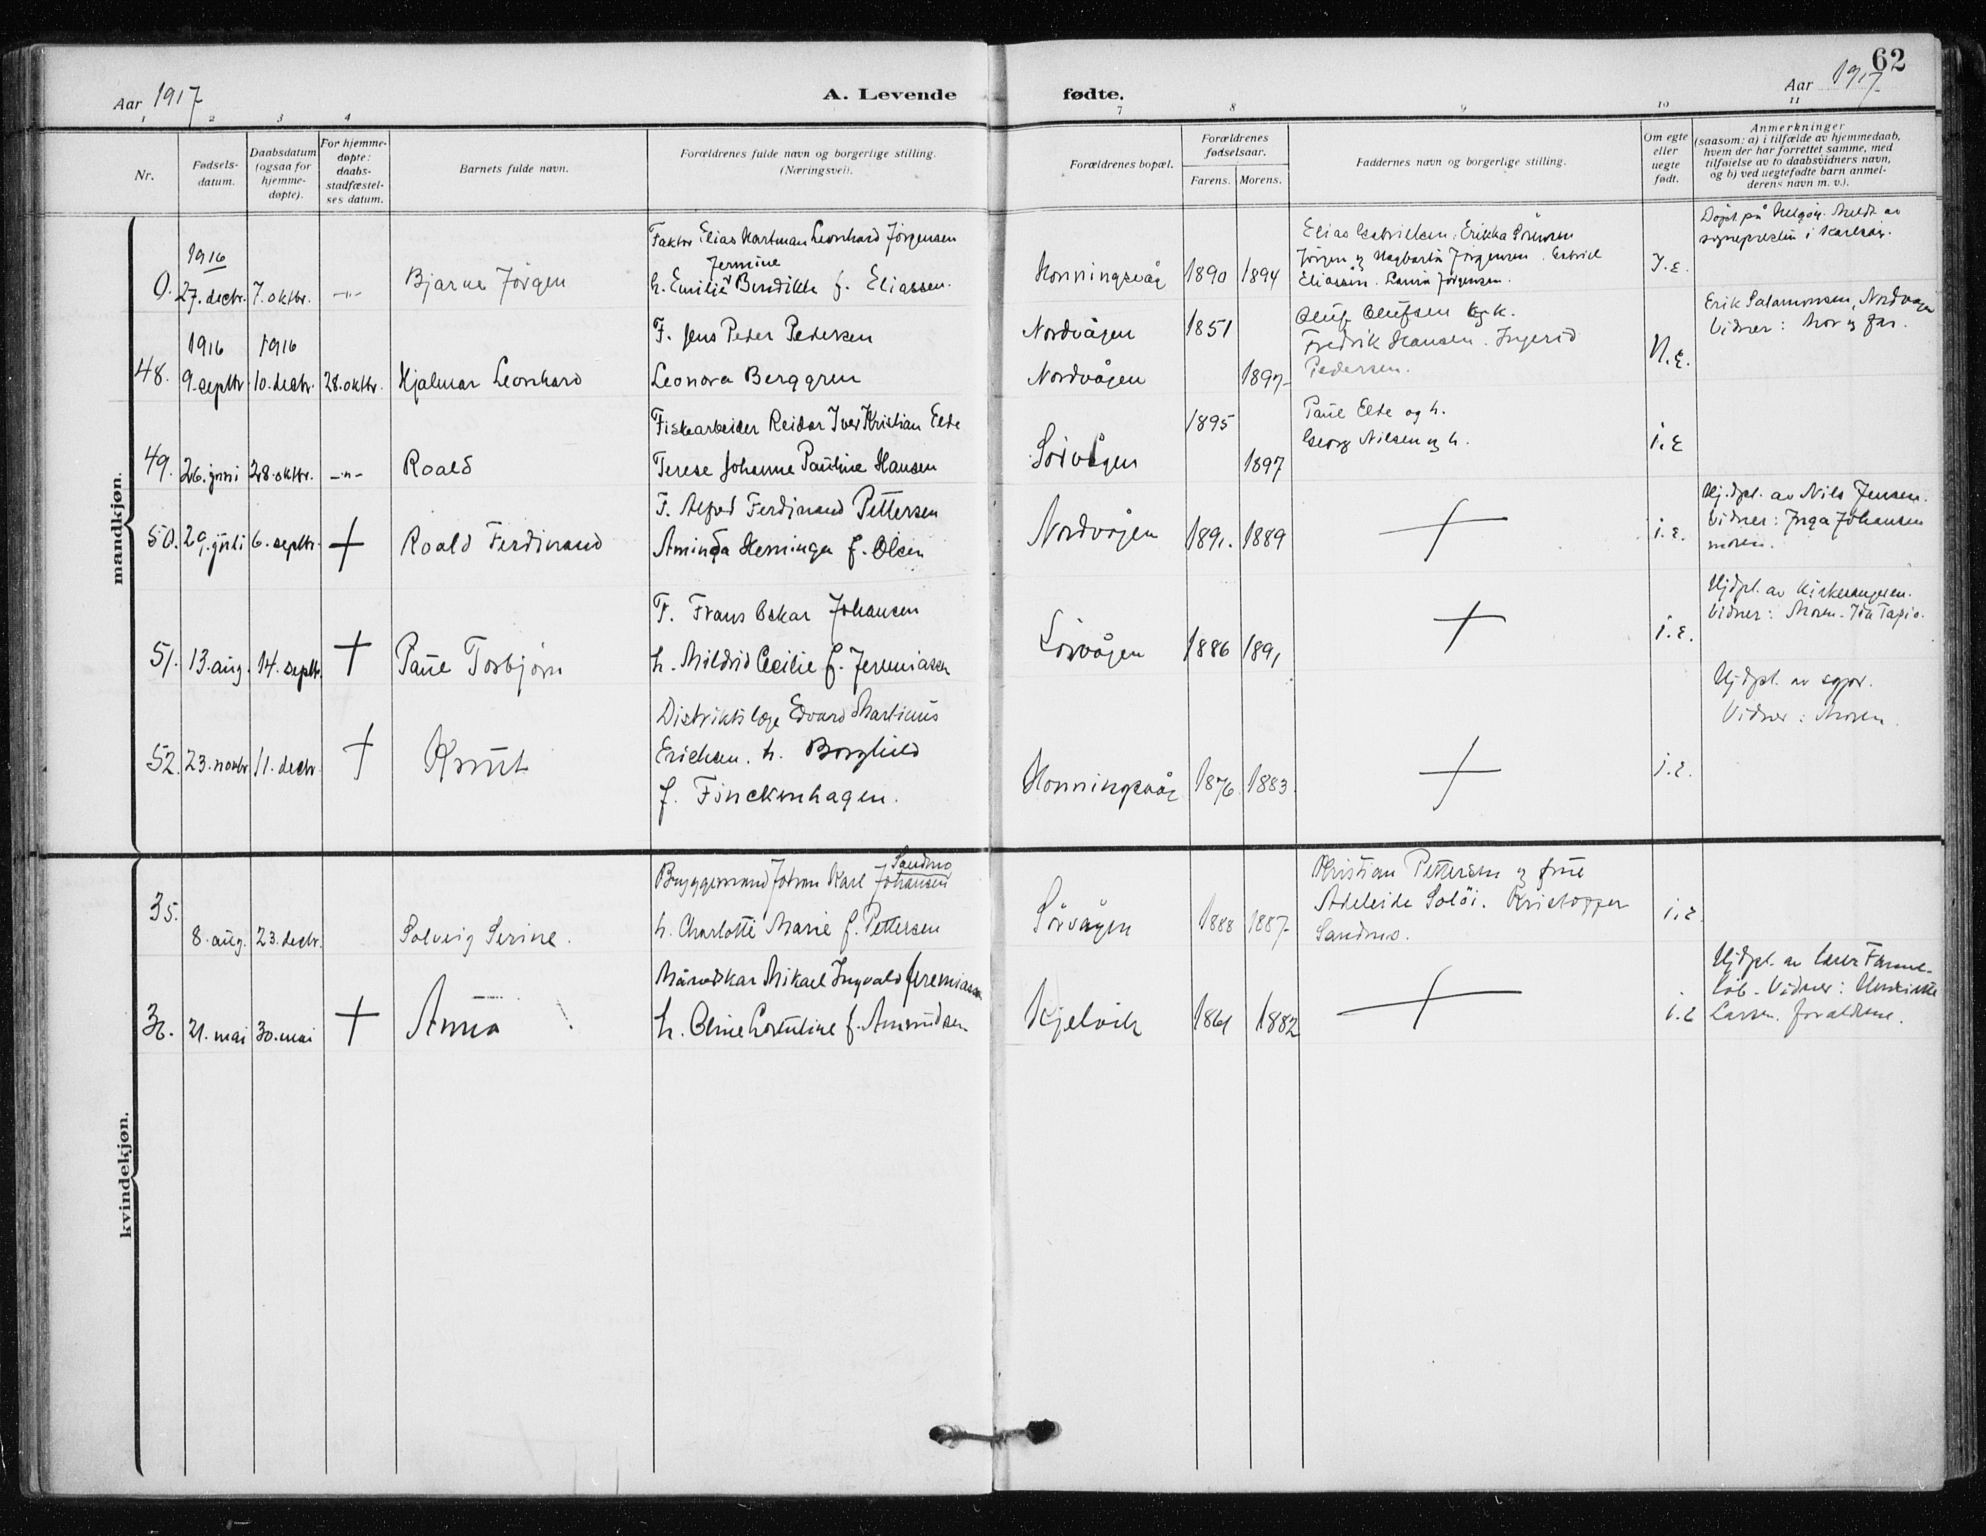 62
Aar 1917
A. Levende
fødte.
Aar 1917
1 2 3 4 7 8 9 10 11
Nr.
Fødsels-
datum.
Daabsdatum
(ogsaa for
hjemme-
døpte).
For hjemme-
døpte:
daabs-
stadfæstel-
ses datum.
Barnets fulde navn.
Forældrenes fulde navn og borgerlige stilling.
(Næringsvei).
Forældrenes bopæl.
Forældrenes
fødselsaar.
Farens. Morens.
Faddernes navn og borgerlige stilling.
Om egte
eller
uegte
født.
Anmerkninger
(saasom: a) i tilfælde av hjemmedaab,
hvem der har forrettet samme, med
tilføielse av to daabsvidners navn,
og b) ved uegtefødte barn anmel-
derens navn m. v.).
mandkjøn.
0.
1916
27. decbr.
7. oktbr.
-"-
Bjarne Jörgen
Faktor Elias Hartman Leonhard Jörgensen
Jermine
h. Emilie Bendikke f. Eliassen.
Honningsvåg
1890
1894
Elias Gabrielsen. Erikka Sörensen
Jörgen og Hagbarta Jörgensen. Gabriel
Eliassen. Laura Jörgensen.
I. E.
Döpt på Helgöy. Meldt av
sognepresten i Karlsöy.
48.
1916
9. septbr.
1916
10. decbr.
28. oktbr.
Hjalmar Leonhard
F. Jens Peder Pedersen
Leonora Berggren
Nordvågen
Nordvågen
1851
1897
Oluf Olufsen og k.
Fredrik Hansen. Ingerid
Pedersen.
U. E.
Erik Salamonsen, Nordvågen
Vidner: Mor og far.
49.
26. juni
28. oktbr.
-"-
Roald
Fiskearbeider Reidar Iver Kristian Elde
Terese Johanne Pauline Hansen
Sörvågen
1895
1897
Paul Elde og h.
Georg Nilsen og h.
i. E
50.
29. juli
6. septbr.
+
Roald Ferdinand
F. Alfred Ferdinand Pettersen
Aminda Henninga f. Olsen
Nordvågen
1891.
1889
+
i. E.
Hj.dpt. av Nils Jensen.
Vidner: Inga Johansen
moren.
51.
13. aug.
14. septbr.
+
Paul Torbjørn
F. Frans Oskar Johansen
h. Mildrid Cecilie f. Jeremiasen
Sörvågen
1886
1891
+
i. E.
Hjdpt. av Kirkesangeren.
Vidner: Moren. Ida Tapio.
52.
23. novbr.
11. decbr.
+
Knut
Distriktslæge Edvard Martinus
Erichsen. h. Borghild
f. Finckenhagen.
Honningsvåg
1876.
1883.
+
i. E.
Hjdpt. av sgpr.
Vidner: Moren.
kvindekjøn.
35.
8. aug.
23. decbr.
Solveig Serine.
Sandmo
Bryggemand Johan Karl Johansen
h. Charlotte Marie f. Pettersen
Sörvågen
1888
1887
Kristian Pettersen og frue
Adeleide Solöi. Kristoffer
Sandmo.
i. E
36.
21. mai
30. mai
+
Anna
Mikael Ingvald Jeremiasen
h. Oline f. Amundsen
Kjelvik
1861
1882
+
i. E
Hjdpt. av
Vidner:
Larsen. forældrene.